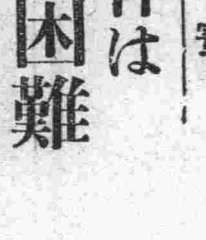 は
困難